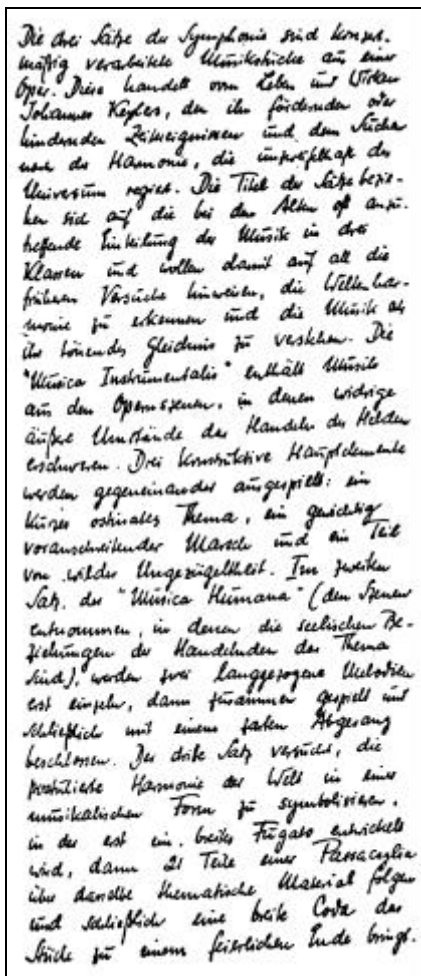 Die drei Sätze der Symphonie sind konzert-
mäßig verarbeitete Musikstücke aus einer
Oper. Diese handelt vom Leben und Wirken
Johannes Keplers, den ihn fördernden oder
hindernden Zeitereignissen und dem Suchen
nach der Harmonie, die unzweifelhaft das
Universum regiert. Die Titel der Sätze bezie-
hen sich auf die bei den Alten oft anzu-
treffende Einteilung der Musik in drei
Klassen und wollen damit auf all die
früheren Versuche hinweisen, die Weltenhar-
monie zu erkennen und die Musik als
ihr tönendes Gleichnis zu verstehen. Die
"Musica Instrumentalis" enthält Musik
aus den Opernszenen, in denen widrige
äußere Umstände das Handeln des Helden
erschweren. Drei konstruktive Hauptelemente
werden gegeneinander ausgespielt: ein
kurzes ostinates Thema, ein gewichtig
voranschreitender Marsch und ein Teil
von wilder Ungezügeltheit. Im zweiten
Satz, der "Musica Humana" (den Szenen
entnommen, in denen die seelischen Be-
ziehungen der Handelnden das Thema
sind), werden zwei langgezogene Melodien
erst einzeln, dann zusammen gespielt und
schließlich mit einem zarten Abgesang
beschlossen. Der dritte Satz versucht, die
Harmonie der Welt in einer
musikalischen Form zu symbolisieren,
in der erst ein breites Fugato entwickelt
wird, dann 21 Teile einer Passacaglia
über dasselbe thematische Material folgen
und schließlich eine breite Coda das
Stück zu einem feierlichen Ende bringt.